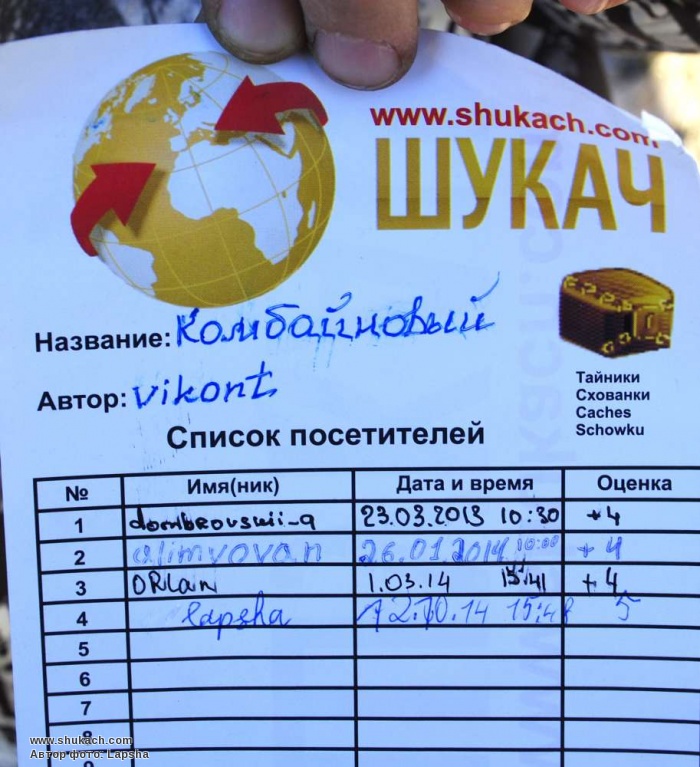 www.shukach.com
ШУКАЧ
Название: Комбайновый
Тайники
Схованки
Caches
Schowku
Автор: vikont
Список посетителей
№ Имя(ник) Дата и время Оценка
1 dombrovskii-a 23.03.2013 10:30 +4
2 alimvovan 26.01.2014 10:00 +4
3 ORLan 1.03.14 15:41 +4
4 lapsha 12.10.14 15:48 5
5
6
7
8
www.shukach.com
Автор фото: Lapsha